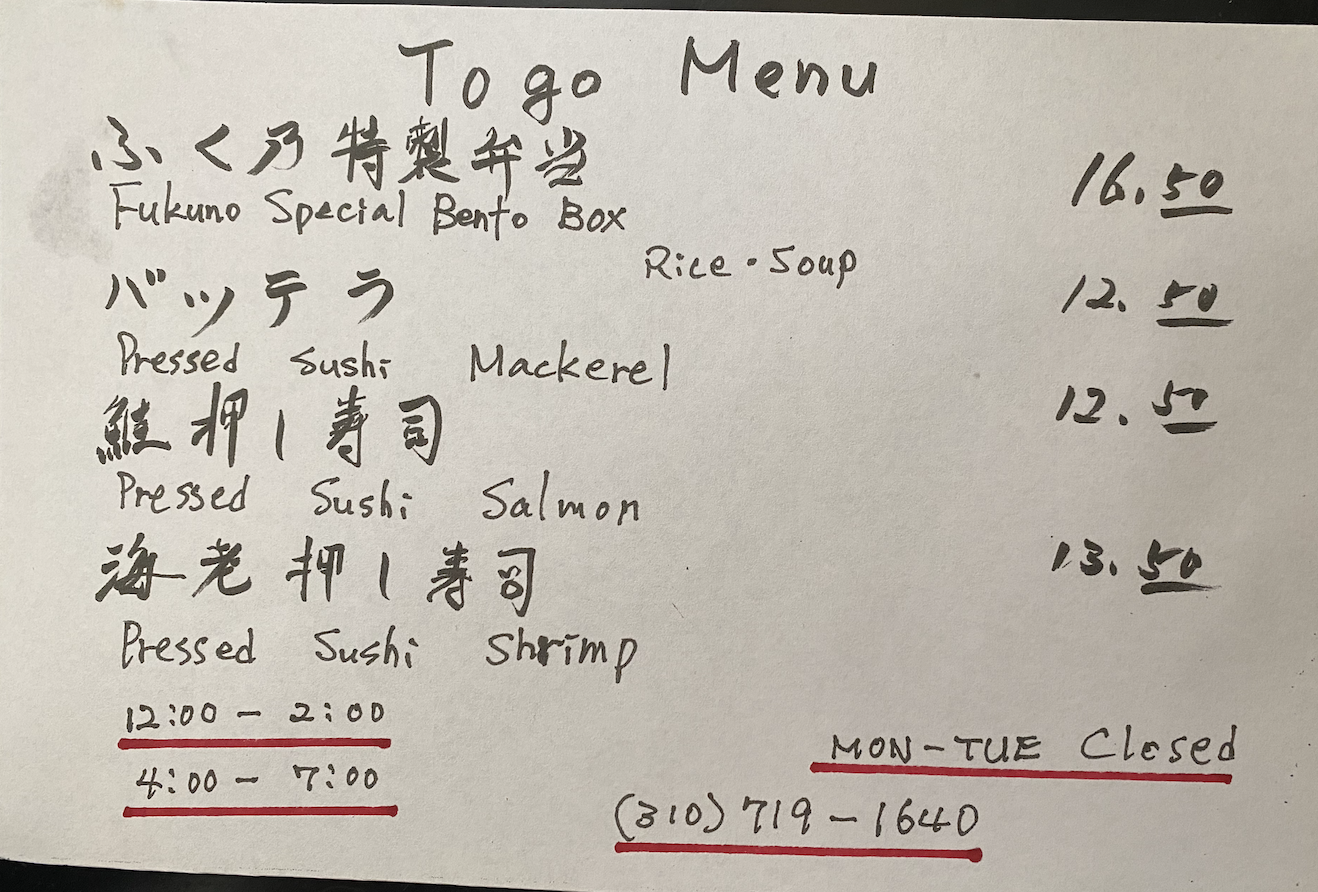 To go Menu
ふく乃特製弁当 16.50
Fukuno Special Bento Box
Rice・Soup
バッテラ 12.50
Pressed Sushi Mackerel
鮭押し寿司 12.50
Pressed Sushi Salmon
海老押し寿司 13.50
Pressed Sushi Shrimp
12:00 - 2:00
MON-TUE Closed
4:00 - 7:00
(310) 719-1640